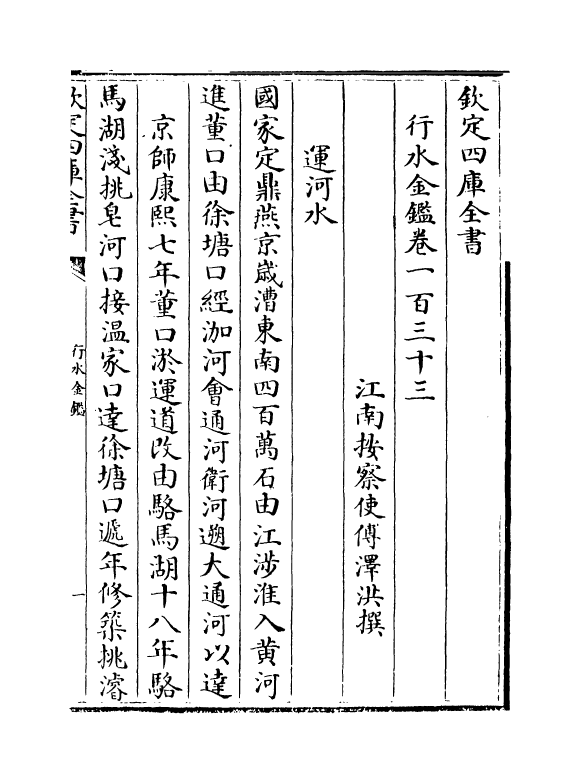 欽定四庫全書
行水金鑑卷一百三十三
江南按察使傅澤洪撰
運河水
國家定鼎燕京歲漕東南四百萬石由江涉淮入黄河
進董口由徐塘口經泇河會通河衛河遡大通河以達
京師康熙七年董口淤運道改由駱馬湖十八年駱
馬湖淺挑皂河口接溫家口達徐塘口遞年修築挑濬
欽定四庫全書
行水金鑑
一